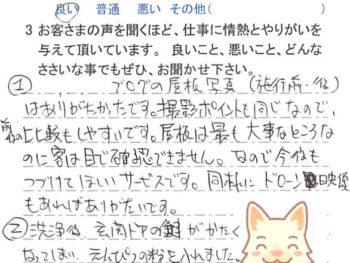 良い 普通 悪い その他(
3 お客さまの声を聞くほど、仕事に情熱とやりがいを
与えて頂いています。 良いこと、悪いこと、どんな
ささいな事でもぜひ、お聞かせ下さい。
① ブログの屋根写真(施行前・後)
はありがたかたです。撮影ポイントも同じなので、
前後比較もしやすいです。屋根は最も大事なところな
のに客は目で確認できません。なので今後も
つづけてほしいサービスです。同様にドローン映像
もあればありがたいです。
② 洗浄後、玄関ドアの鍵がかたく
なってしまい、えんぴつの粉を入れました。